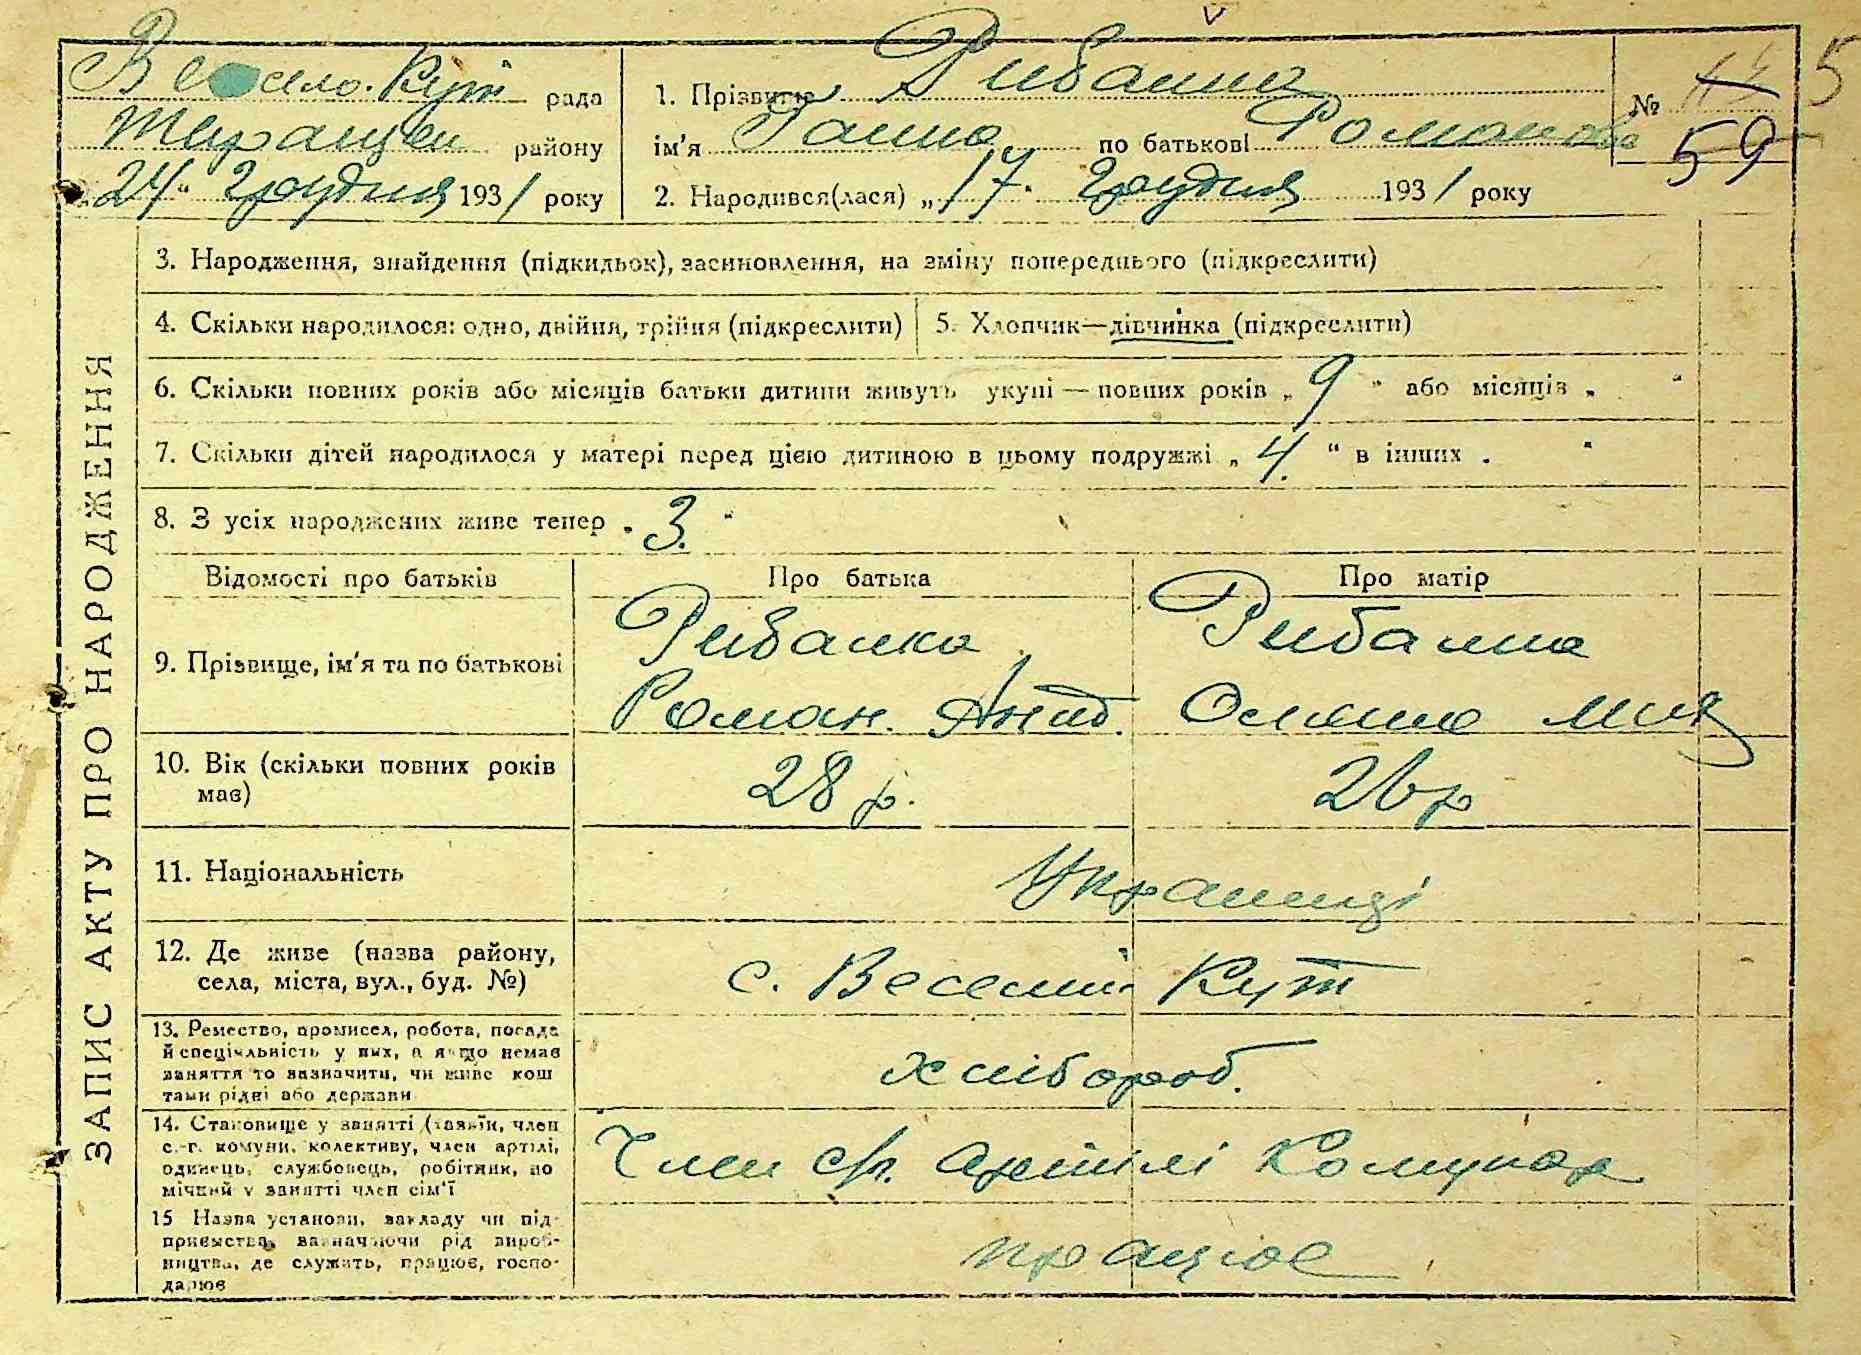 Весело.Кут рада
Таращан району
24" грудня 1931 року
1. Прізвище Рибалка
ім'я Ганна по батькові Романовна
2. Народився(лася) „17" грудня 1931 року
№ 59
5
ЗАПИС АКТУ ПРО НАРОДЖЕННЯ
3. Народження, знайдення (підкидьок), засиновлення, на зміну попереднього (підкреслити)
4. Скільки народилося: одно, двійня, трійня (підкреслити) 5. Хлопчик—дівчинка (підкреслити)
6. Скільки повних років або місяців батьки дитини живуть укупі — повних років „ 9 " або місяців „ "
7. Скільки дітей народилося у матері перед цією дитиною в цьому подружжі „ 4. " в інших „ "
8. З усіх народжених живе тепер „ 3. "
Відомості про батьків Про батька Про матір
9. Прізвище, ім'я та по батькові
Рибалка Рибалка
Роман. Оляна
10. Вік (скільки повних років має)
28 р. 26 р
11. Національність
Українці
12. Де живе (назва району,
села, міста, вул., буд. №)
с. Веселий Кут
13. Ремество, промисел, робота, посада
й спеціяльність у них, а якщо немає
заняття то зазначити, чи живе кош
тами рідні або держави
хлібороб.
14. Становище у занятті (хазяїн, член
с.-г. комуни, колективу, член артілі,
одинець, службовець, робітник, по
мічний у занятті член сім'ї
Член с/г. артілі Комунар
15 Назва установи, закладу чи під-
приємства, вазначаючи рід вироб-
ництва, де служить, працює, госпо-
дарює
працює